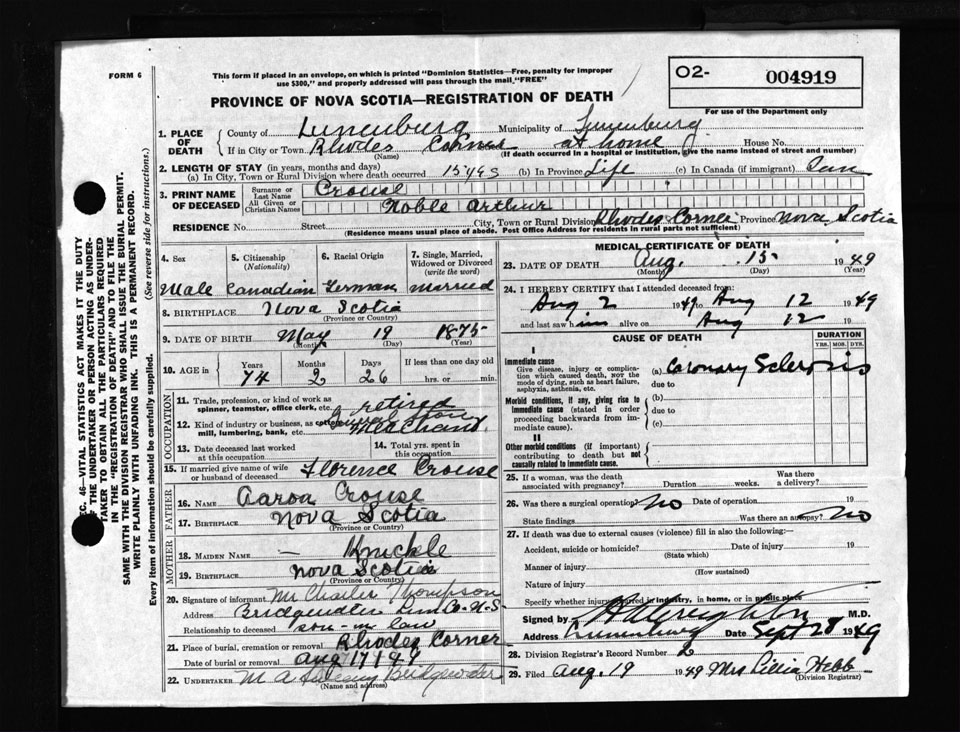 FORM 6
This form if placed in an envelope, on which is printed "Dominion Statistics—Free, penalty for improper
use $300," and properly addressed will pass through the mail, "FREE"
O2- 004919
For use of the Department only
PROVINCE OF NOVA SCOTIA—REGISTRATION OF DEATH
1. PLACE OF DEATH
County of Lunenburg Municipality of Lunenburg
If in City or Town Rhodes Corner at home House No.
(Name) (If death occurred in a hospital or institution, give the name instead of street and number)
2. LENGTH OF STAY (in years, months and days)
(a) In City, Town or Rural Division where death occurred 15 yrs (b) In Province Life (c) In Canada (if immigrant)
3. PRINT NAME OF DECEASED
Surname or Last Name Crouse
All Given or Christian Names Noble Arthur
RESIDENCE No. Street City, Town or Rural Division Rhodes Corner Province Nova Scotia
(Residence means usual place of abode. Post Office Address for residents in rural parts not sufficient)
4. Sex 5. Citizenship (Nationality) 6. Racial Origin 7. Single, Married, Widowed or Divorced (write the word)
Male Canadian German Married
8. BIRTHPLACE Nova Scotia
(Province or Country)
9. DATE OF BIRTH May 19 1875
(Month) (Day) (Year)
10. AGE in Years Months Days If less than one day old
74 2 26 hrs. or min.
OCCUPATION
11. Trade, profession, or kind of work as spinner, teamster, office clerk, etc. retired
12. Kind of industry or business, as cotton mill, lumbering, bank, etc. Merchant
13. Date deceased last worked at this occupation 14. Total yrs. spent in this occupation
15. If married give name of wife or husband of deceased Florence Crouse
FATHER
16. NAME Aaron Crouse
17. BIRTHPLACE Nova Scotia
(Province or Country)
MOTHER
18. MAIDEN NAME — Knickle
19. BIRTHPLACE Nova Scotia
(Province or Country)
20. Signature of informant Mr Charles Thompson
Address Bridgewater Lun Co. N-S
Relationship to deceased son-in law
21. Place of burial, cremation or removal Rhodes Corner
Date of burial or removal Aug 17 / 49
22. UNDERTAKER M A Bridgewater
(Name and address)
MEDICAL CERTIFICATE OF DEATH
23. DATE OF DEATH Aug. 15 1949
(Month) (Day) (Year)
24. I HEREBY CERTIFY that I attended deceased from:
Aug 2 1949 to Aug 12 1949
and last saw him alive on Aug 12 19
CAUSE OF DEATH
DURATION
YRS. MOS. DYS.
I
Immediate cause
Give disease, injury or complication which caused death, NOT the mode of dying, such as heart failure, asphyxia, asthenia, etc.
(a) Coronary Sclerosis
due to
Morbid conditions, if any, giving rise to immediate cause (stated in order proceeding backwards from immediate cause).
(b)
due to
(c)
II
Other morbid conditions (if important) contributing to death but not causally related to immediate cause.
25. If a woman, was the death associated with pregnancy? Duration weeks. Was there a delivery?
26. Was there a surgical operation? No Date of operation 19
State findings Was there an autopsy? No
27. If death was due to external causes (violence) fill in also the following:
Accident, suicide or homicide? Date of injury 19
(State which)
Manner of injury
(How sustained)
Nature of injury
Specify whether injury occurred in industry, in home, or in public place
Signed by H A Creighton M.D.
Address Lunenburg Date Sept 28 1949
28. Division Registrar's Record Number 2
29. Filed Aug. 19 1949 Mrs Lillia Hebb
(Division Registrar)
SEC. 46—VITAL STATISTICS ACT MAKES IT THE DUTY
OF THE UNDERTAKER OR PERSON ACTING AS UNDER-
TAKER TO OBTAIN ALL THE PARTICULARS REQUIRED
IN THE "REGISTRATION OF DEATH" AND TO FILE THE
SAME WITH THE DIVISION REGISTRAR WHO SHALL ISSUE THE BURIAL PERMIT.
WRITE PLAINLY WITH UNFADING INK. THIS IS A PERMANENT RECORD.
Every item of information should be carefully supplied. (See reverse side for instructions.)